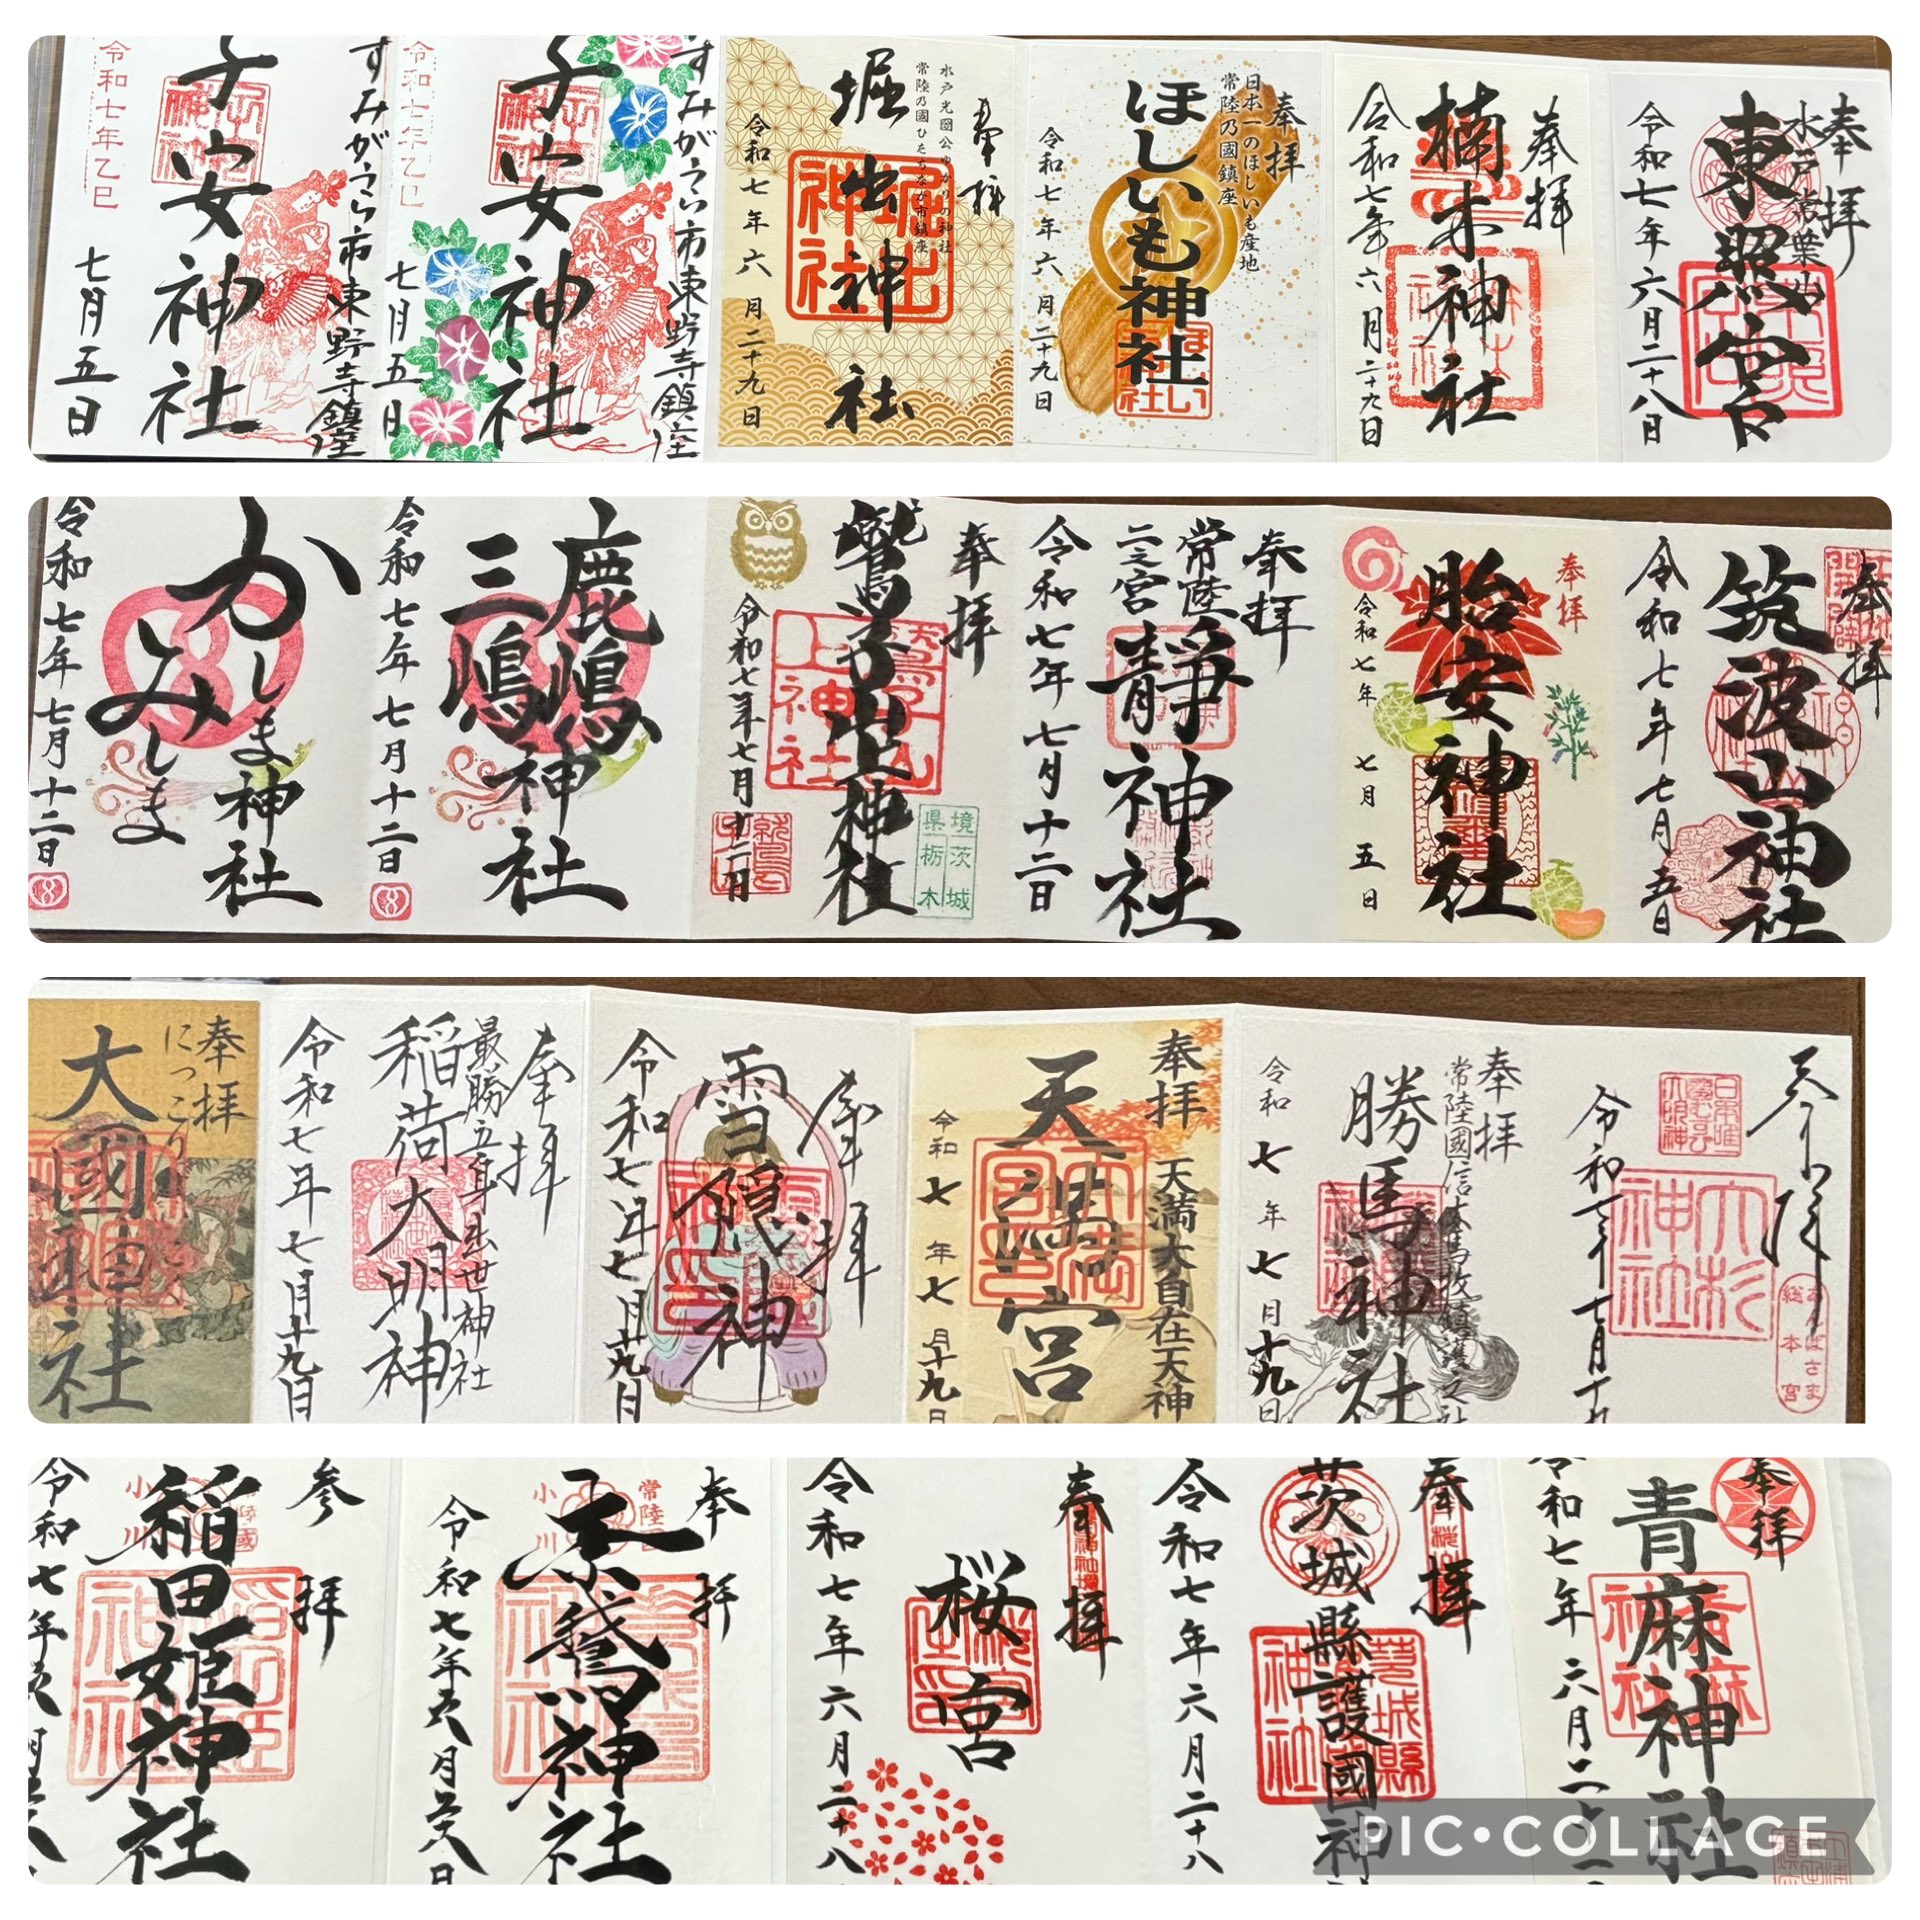 奉拝
水戸常葉山
東照宮
令和七年六月二十八日
奉拝
楠木神社
令和七年六月二十九日
奉拝
日本一のほしいも産地
常陸乃國鎮座
ほしいも神社
令和七年六月二十九日
奉拝
水戸光圀公ゆかりの神社
常陸乃國ひたちなか市鎮座
堀出神社
令和七年六月二十九日
すみがうら市東野寺鎮座
子安神社
七月五日
令和七年乙巳
すみがうら市東野寺鎮座
子安神社
七月五日
令和七年乙巳
奉拝
筑波山神社
令和七年七月五日
奉拝
胎安神社
令和七年七月五日
奉拝
常陸
二之宮
靜神社
令和七年七月十二日
奉拝
鷲子山上神社
令和七年七月十二日
境 茨城
県 栃木
鹿嶋
三嶋
神社
令和七年七月十二日
かしま神社
みしま
令和七年七月十二日
奉拝
大杉神社
あんばさま
総本宮
令和七年七月十九
奉拝
常陸國信太馬牧鎮護之社
勝馬神社
令和七年七月十九日
奉拝
天満大自在天神
天満宮
令和七年七月十九日
奉拝
雪隠神
令和七年七月十九日
奉拝
最勝立身出世神社
稲荷大明神
令和七年七月十九日
奉拝
にっこり
大國神社
奉拝
青麻神社
令和七年六月二十
奉拝
茨城縣護國神
令和七年六月二十八
奉拝
桜宮
令和七年六月二十八
奉拝
常陸國
小川
素鵞神社
令和七年六月廿八日
参拝
常陸國
小川
稲田姫神社
令和七年六月廿八
PIC•COLLAGE